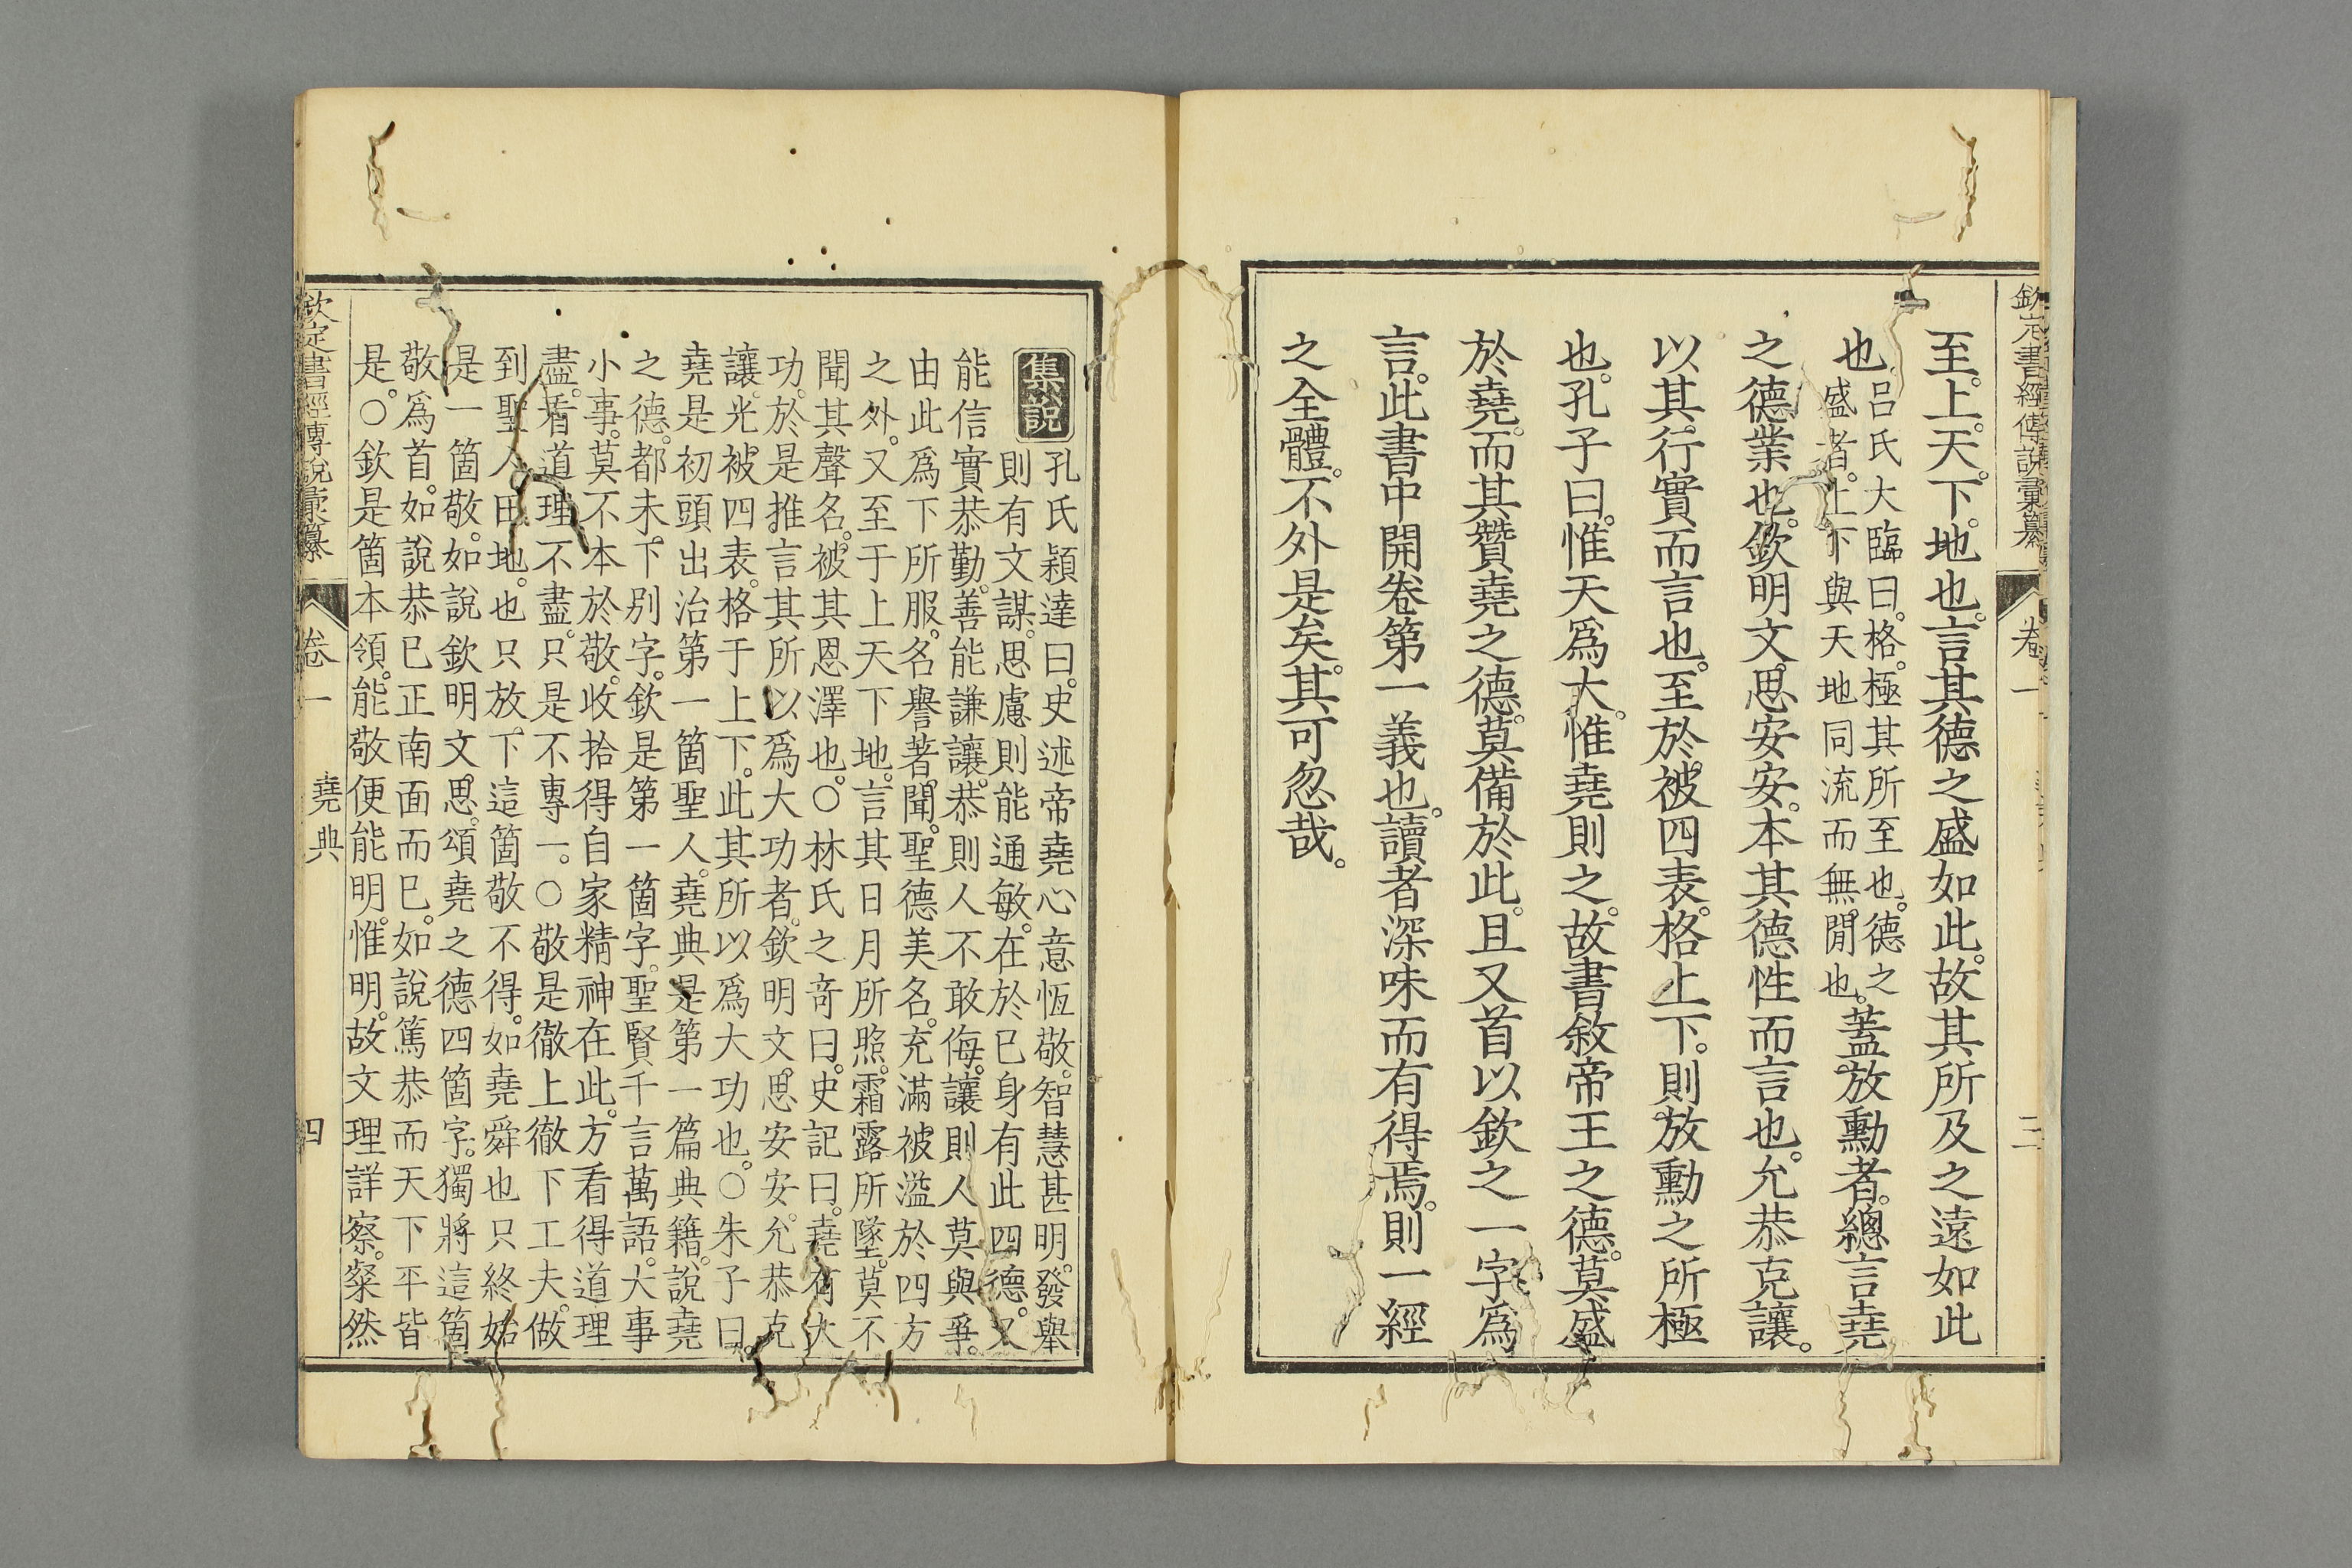 欽定書經傳說彙纂
卷一
三
至上天下地也言其德之盛如此故其所及之遠如此
也呂氏大臨曰格極其所至也德之
盛者上下與天地同流而無閒也蓋放勳者總言堯
之德業也欽明文思安安本其德性而言也允恭克讓
以其行實而言也至於被四表格上下則放勳之所極
也孔子曰惟天爲大惟堯則之故書敘帝王之德莫盛
於堯而其贊堯之德莫備於此且又首以欽之一字爲
言此書中開卷第一義也讀者深味而有得焉則一經
之全體不外是矣其可忽哉
集說
孔氏穎達曰史述帝堯心意恆敬智慧甚明發舉
則有文謀思慮則能通敏在於已身有此四德又
能信實恭勤善能謙讓恭則人不敢侮讓則人莫與爭
由此爲下所服名譽著聞聖德美名充滿被溢於四方
之外又至于上天下地言其日月所照霜露所墜莫不
聞其聲名被其恩澤也○林氏之奇曰史記曰堯有大
功於是推言其所以爲大功者欽明文思安安允恭克
讓光被四表格于上下此其所以爲大功也○朱子曰
堯是初頭出治第一箇聖人堯典是第一篇典籍說堯
之德都未下別字欽是第一箇字聖賢千言萬語大事
小事莫不本於敬收拾得自家精神在此方看得道理
盡看道理不盡只是不專一○敬是徹上徹下工夫做
到聖人田地也只放下這箇敬不得如堯舜也只終始
是一箇敬如說欽明文思頌堯之德四箇字獨將這箇
敬爲首如說恭已正南面而已如說篤恭而天下平皆
是○欽是箇本領能敬便能明惟明故文理詳察粲然
欽定書經傳說彙纂
卷一
堯典
四